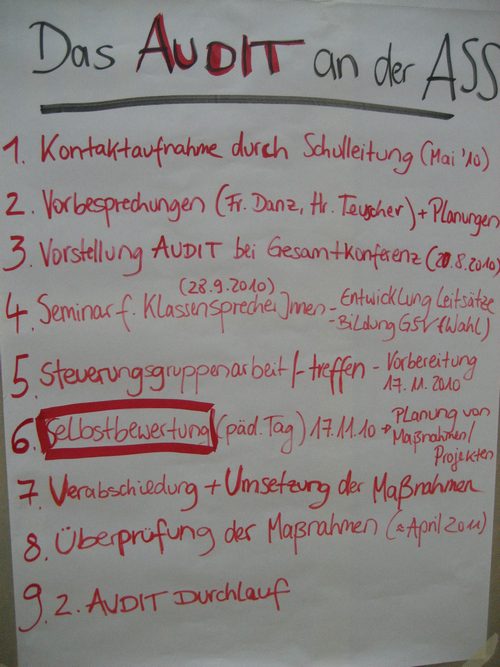 Das AUDIT an der ASS
1. Kontaktaufnahme durch Schulleitung (Mai '10)
2. Vorbesprechungen (Fr. Danz, Hr. Teuscher) + Planungen
3. Vorstellung AUDIT bei Gesamtkonferenz (20.8.2010)
(28.9.2010)
4. Seminar f. KlassensprecherInnen - Entwicklung Leitsätze
- Bildung GSV (Wahl)
5. Steuerungsgruppenarbeit/-treffen - Vorbereitung
17.11.2010
6. Selbstbewertung (päd. Tag) 17.11.10 → Planung von
Maßnahmen/
Projekten
7. Verabschiedung + Umsetzung der Maßnahmen
8. Überprüfung der Maßnahmen (≈ April 2011)
9. 2. AUDIT Durchlauf